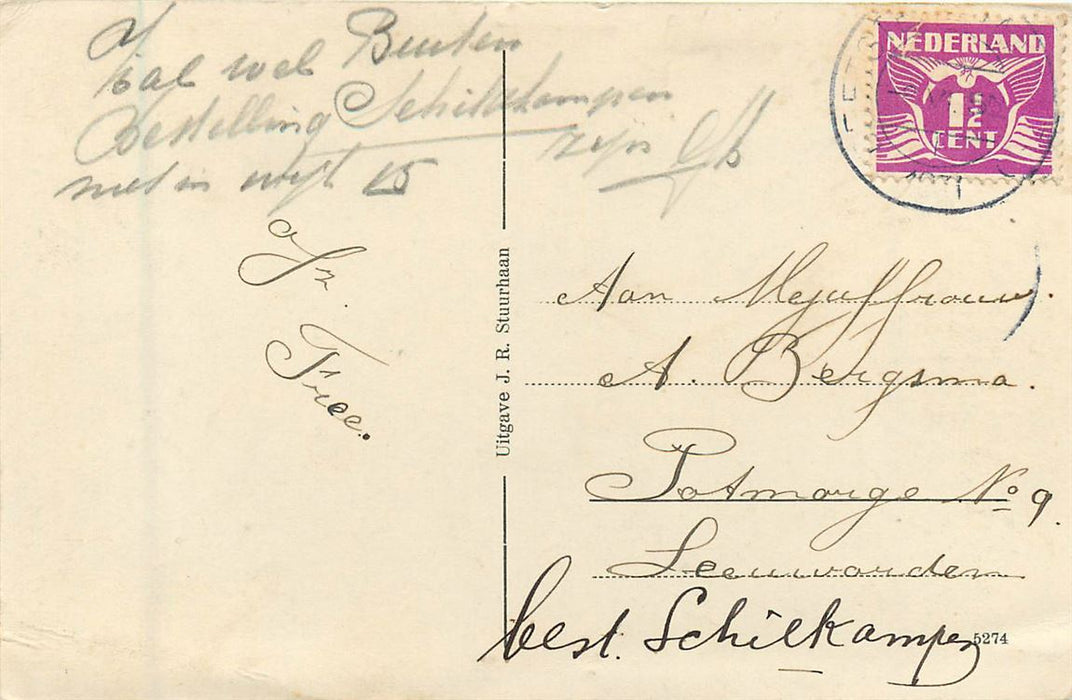 Zal wel Buiten
Bestelling Schilkampen
niet in wijk 15 zijn
Afz.
Free.
Uitgave J. R. Stuurhaan
NEDERLAND
1½
CENT
Aan Mejuffrouw.
A. Bergsma.
Potmarge No 9.
Leeuwarden
best. Schilkampen
5274